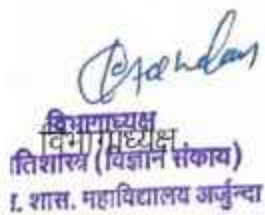 विभागाध्यक्ष
विभागाध्यक्ष
तिशास्त्र (विज्ञान संकाय)
शास. महाविद्यालय अर्जुन्दा